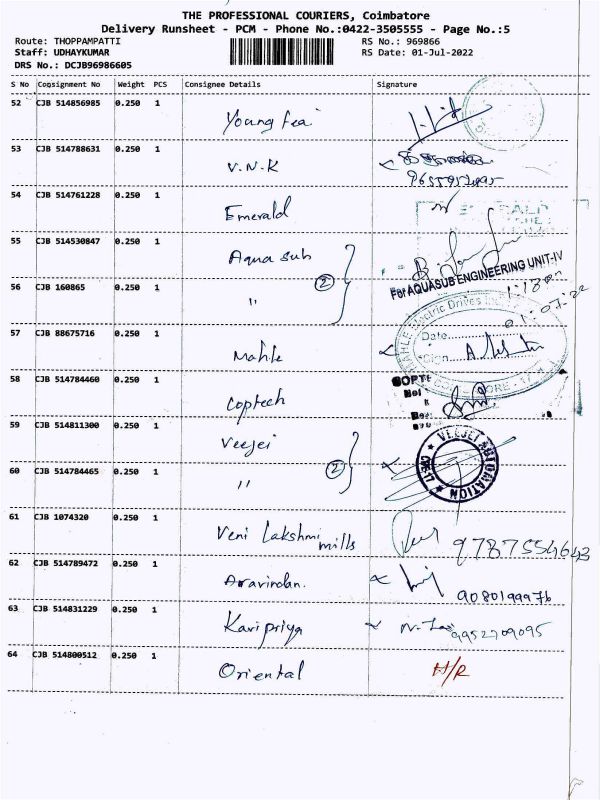 THE PROFESSIONAL COURIERS, Coimbatore
Delivery Runsheet - PCM - Phone No.:0422-3505555 - Page No.:5
Route: THOPPAMPATTI RS No.: 969866
Staff: UDHAYKUMAR RS Date: 01-Jul-2022
DRS No.: DCJB96986605
S No Cogsignment No Weight PCS Consignee Details Signature
52 CJB 514856985 0.250 1 Young Fea
53 CJB 514788631 0.250 1 V.N.K
54 CJB 514761228 0.250 1 Emerald
55 CJB 514530847 0.250 1 Aqua sub
For AQUASUB ENGINEERING UNIT-IV
56 CJB 160865 0.250 1 " 2
01.07.22
57 CJB 88675716 0.250 1 Mahle
MAHLE Electric Drives
Date
Sign
58 CJB 514784460 0.250 1 Coptech
59 CJB 514811300 0.250 1 Veejei
VEEJEI AUTOMATION
60 CJB 514784465 0.250 1 " 2
61 CJB 1074320 0.250 1 Veni Lakshmi mills 9787554643
62 CJB 514789472 0.250 1 Aravindan. 9080199976
63 CJB 514831229 0.250 1 Karipriya 9952709095
64 CJB 514800512 0.250 1 Oriental H/R